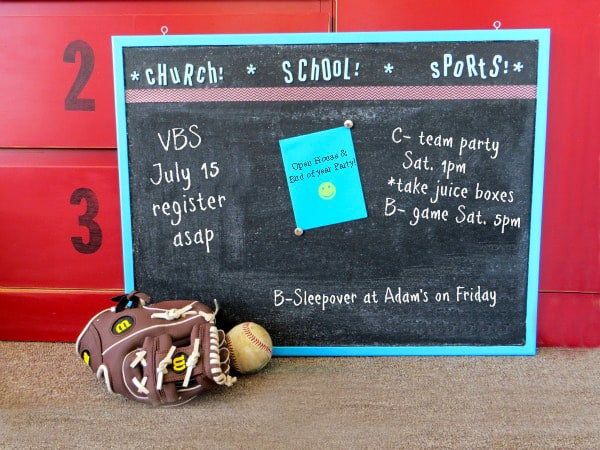 2
3
*CHURCH! * SCHOOL! * SPORTS!*
VBS
July 15
register
asap
Open House &
End of year Party!
C- team party
Sat. 1pm
*take juice boxes
B- game Sat. 5pm
B-Sleepover at Adam's on Friday
W
W
W